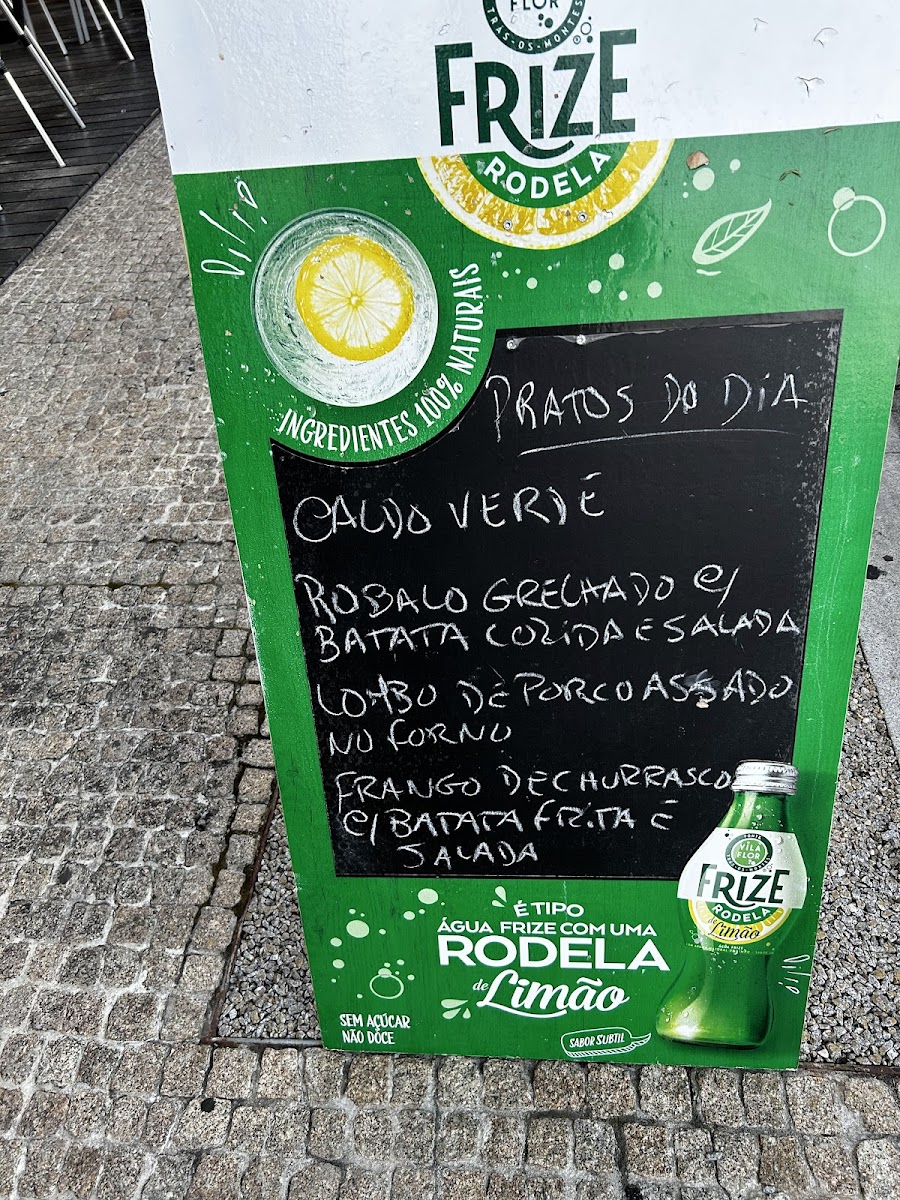 FLOR
TRÁS-OS-MONTES
FRIZE
RODELA
INGREDIENTES 100% NATURAIS
PRATOS DO DIA
CALDO VERDE
ROBALO GRELHADO C/
BATATA COZIDA E SALADA
LOMBO DE PORCO ASSADO
NO FORNO
FRANGO DE CHURRASCO
C/ BATATA FRITA E
SALADA
VILA
FLOR
FRIZE
RODELA
de Limão
É TIPO
ÁGUA FRIZE COM UMA
RODELA
de Limão
SEM AÇÚCAR
NÃO DOCE
SABOR SUBTIL